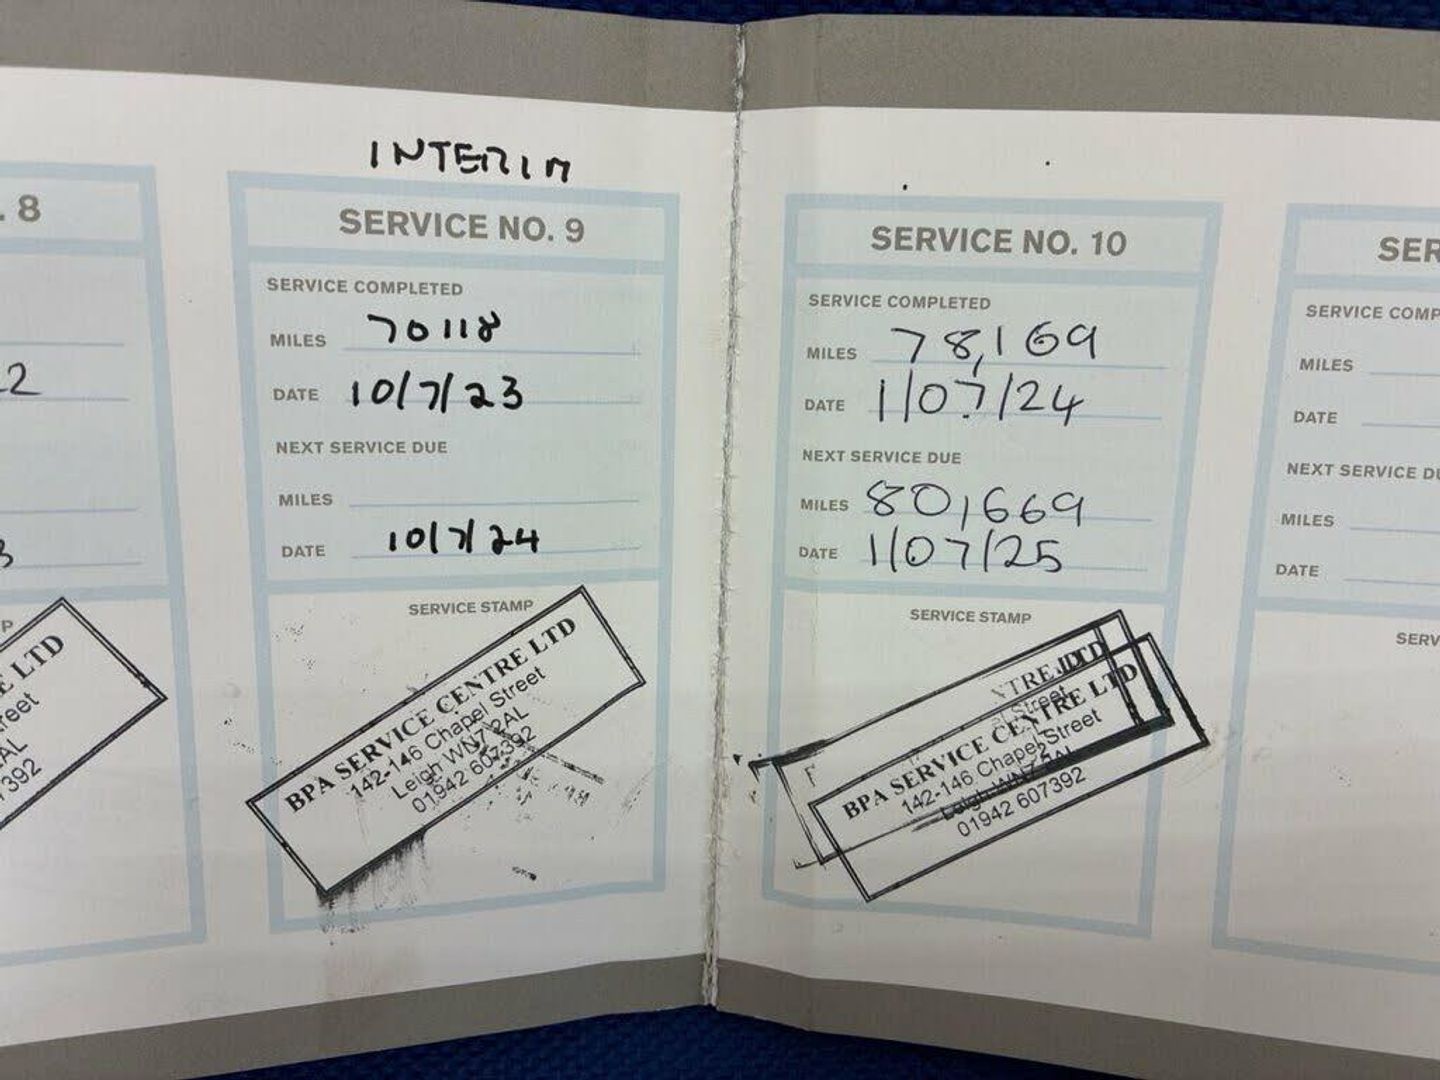 . 8
2
3
P
E LTD
reet
AL
7392
INTERIM
SERVICE NO. 9
SERVICE COMPLETED
MILES 70118
DATE 10/7/23
NEXT SERVICE DUE
MILES
DATE 10/7/24
SERVICE STAMP
BPA SERVICE CENTRE LTD
142-146 Chapel Street
Leigh WN7 2AL
01942 607392
SERVICE NO. 10
SERVICE COMPLETED
MILES 78,169
DATE 1/07/24
NEXT SERVICE DUE
MILES 80,669
DATE 1/07/25
SERVICE STAMP
NTRE LTD
el Street
BPA SERVICE CENTRE LTD
142-146 Chapel Street
Leigh WN7 2AL
01942 607392
SER
SERVICE COMP
MILES
DATE
NEXT SERVICE DU
MILES
DATE
SERV